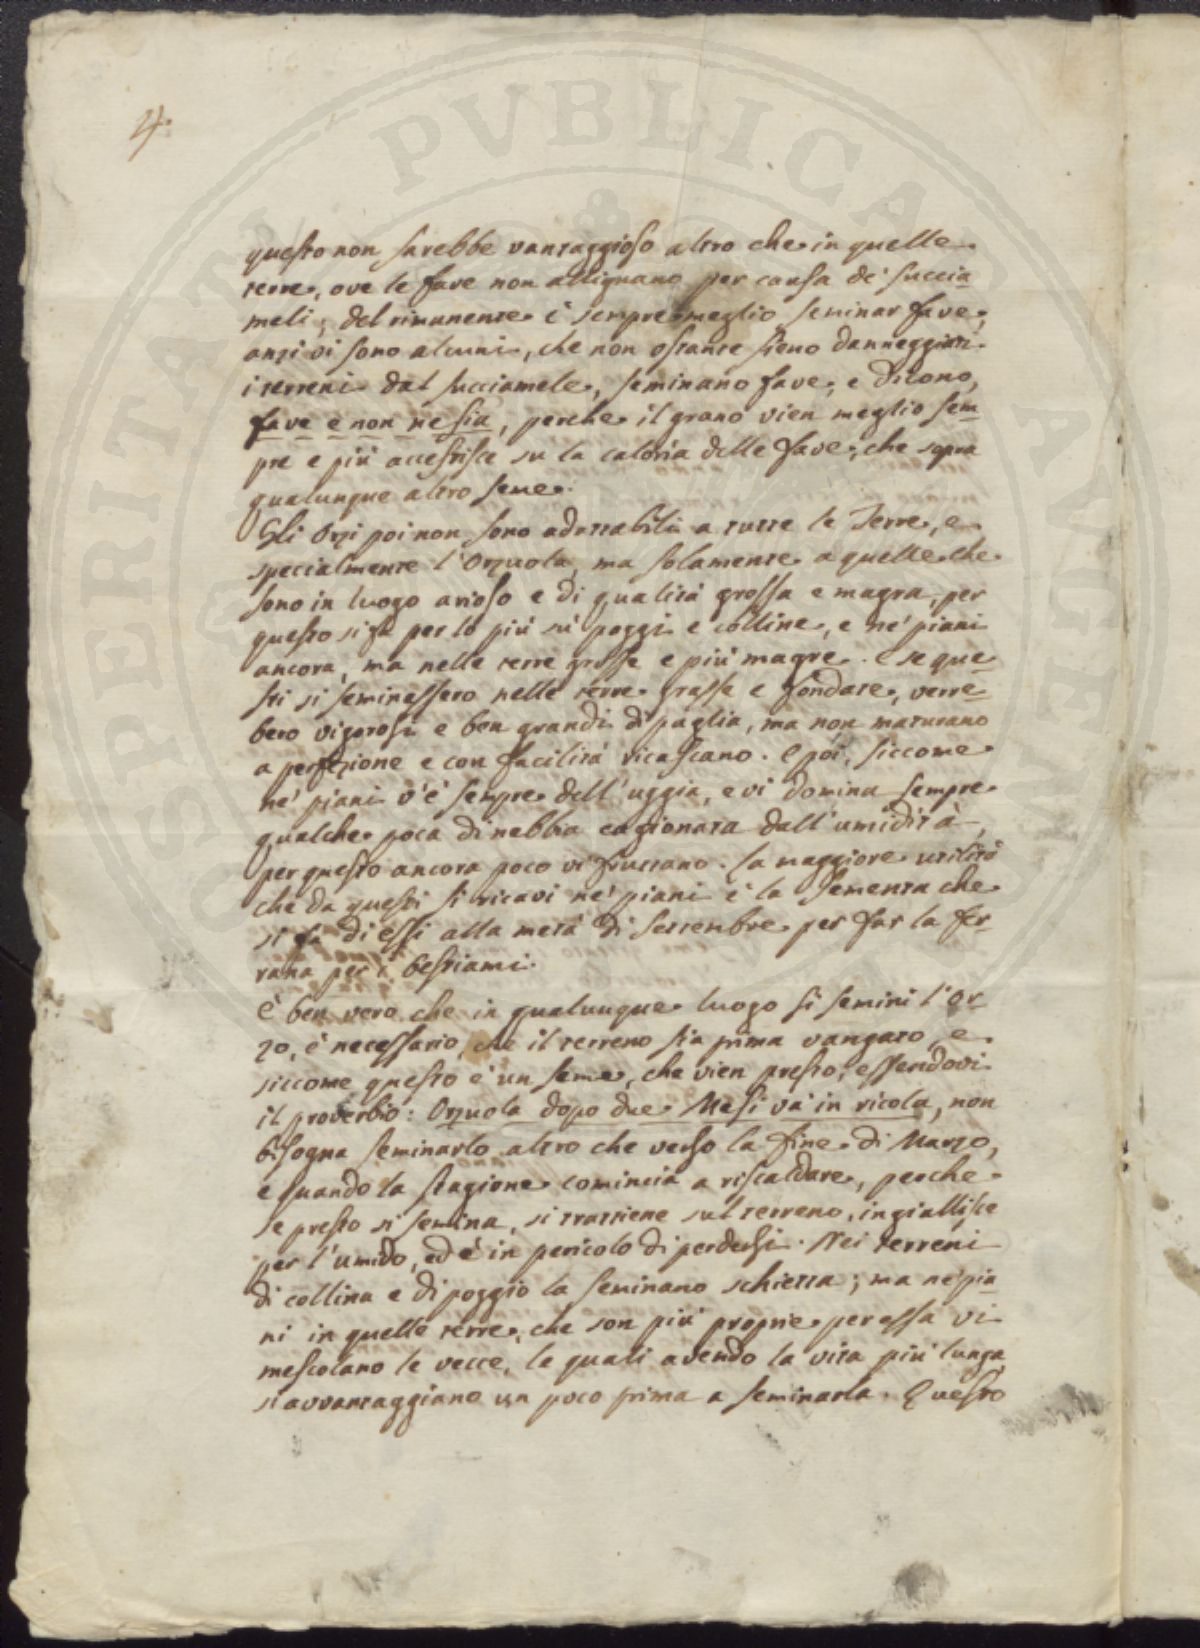 4.
questo non sarebbe vantaggioso altro che in quelle
terre, ove le fave non allignano per causa de' succia
meli; del rimanente è sempre meglio seminar fave;
anzi vi sono alcuni, che non ostante sieno danneggiati
i terreni dal succiamele, seminano fave, e dicono,
fave e non ne sia, perche il grano vien meglio sem
pre e più accestisce su la caloria delle fave, che sopra
qualunque altro seme.
Gli Orzi poi non sono adattabili a tutte le Terre, e
specialmente l'Orzuola, ma solamente a quelle che
sono in luogo arioso e di qualità grossa e magra, per
questo si fa per lo più su' poggi e colline, e ne' piani
ancora, ma nelle terre grosse e più magre. e se que
sti si seminassero nelle terre grasse e fondate, verre
bero vigorosi e ben grandi di paglia, ma non maturano
a perfezione e con facilità ricascano. E poi, siccome
ne' piani v'è sempre dell'uggia, e vi domina sempre
qualche poca di nebbia cagionata dall'umidità,
per questo ancora poco vi fruttano. La maggiore utilità
che da questi si ricavi ne' piani è la sementa che
si fa di essi alla metà di Settembre per far la fer
rana per i bestiami.
È ben vero che in qualunque luogo si semini l'or
zo, è necessario, che il terreno sia prima vangato, e
siccome questo è un seme, che vien presto, essendovi
il proverbio: Orzuola dopo due Mesi va' in ricola, non
bisogna seminarlo altro che verso la fine di Marzo,
e quando la stagione comincia a riscaldare, perche
se presto si semina, si trattiene sul terreno, ingiallisce
per l'umido, ed è in pericolo di perdersi. Nei terreni
di collina e di poggio la seminano schietta; ma ne' pia
ni in quelle terre, che son più proprie per essa vi
mescolano le vecce, le quali avendo la vita più lunga
si avvantaggiano un poco prima a seminarla. Questo
SPERITATE PVBLICA AVGENDA